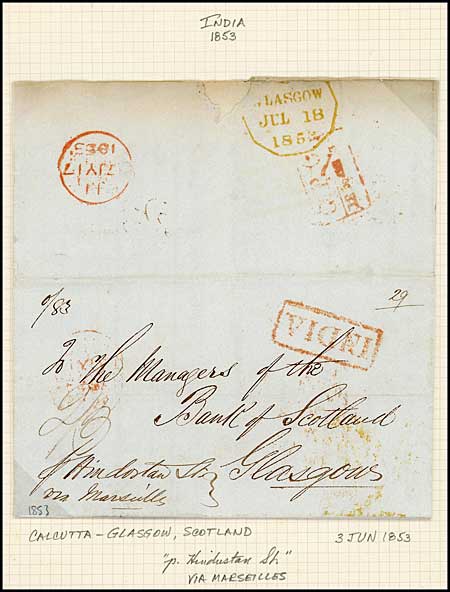 INDIA
1853
GLASGOW
JUL 18
185
1853
JY 17
%83
29
INDIA
To The Managers of the
Bank of Scotland
Glasgow
p Hindostan Str
via Marseilles
1853
CALCUTTA - GLASGOW, SCOTLAND
3 JUN 1853
"p. Hindustan Str."
VIA MARSEILLES